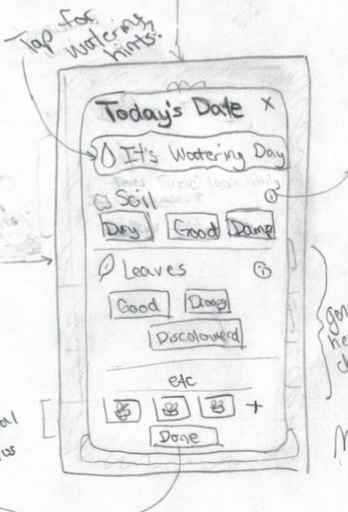 Tap for
watering
hints!
Today's Date X
It's Watering Day
Soil i
Dry Good Damp
Leaves i
Good Droopy
Discolourd
etc
+
Done